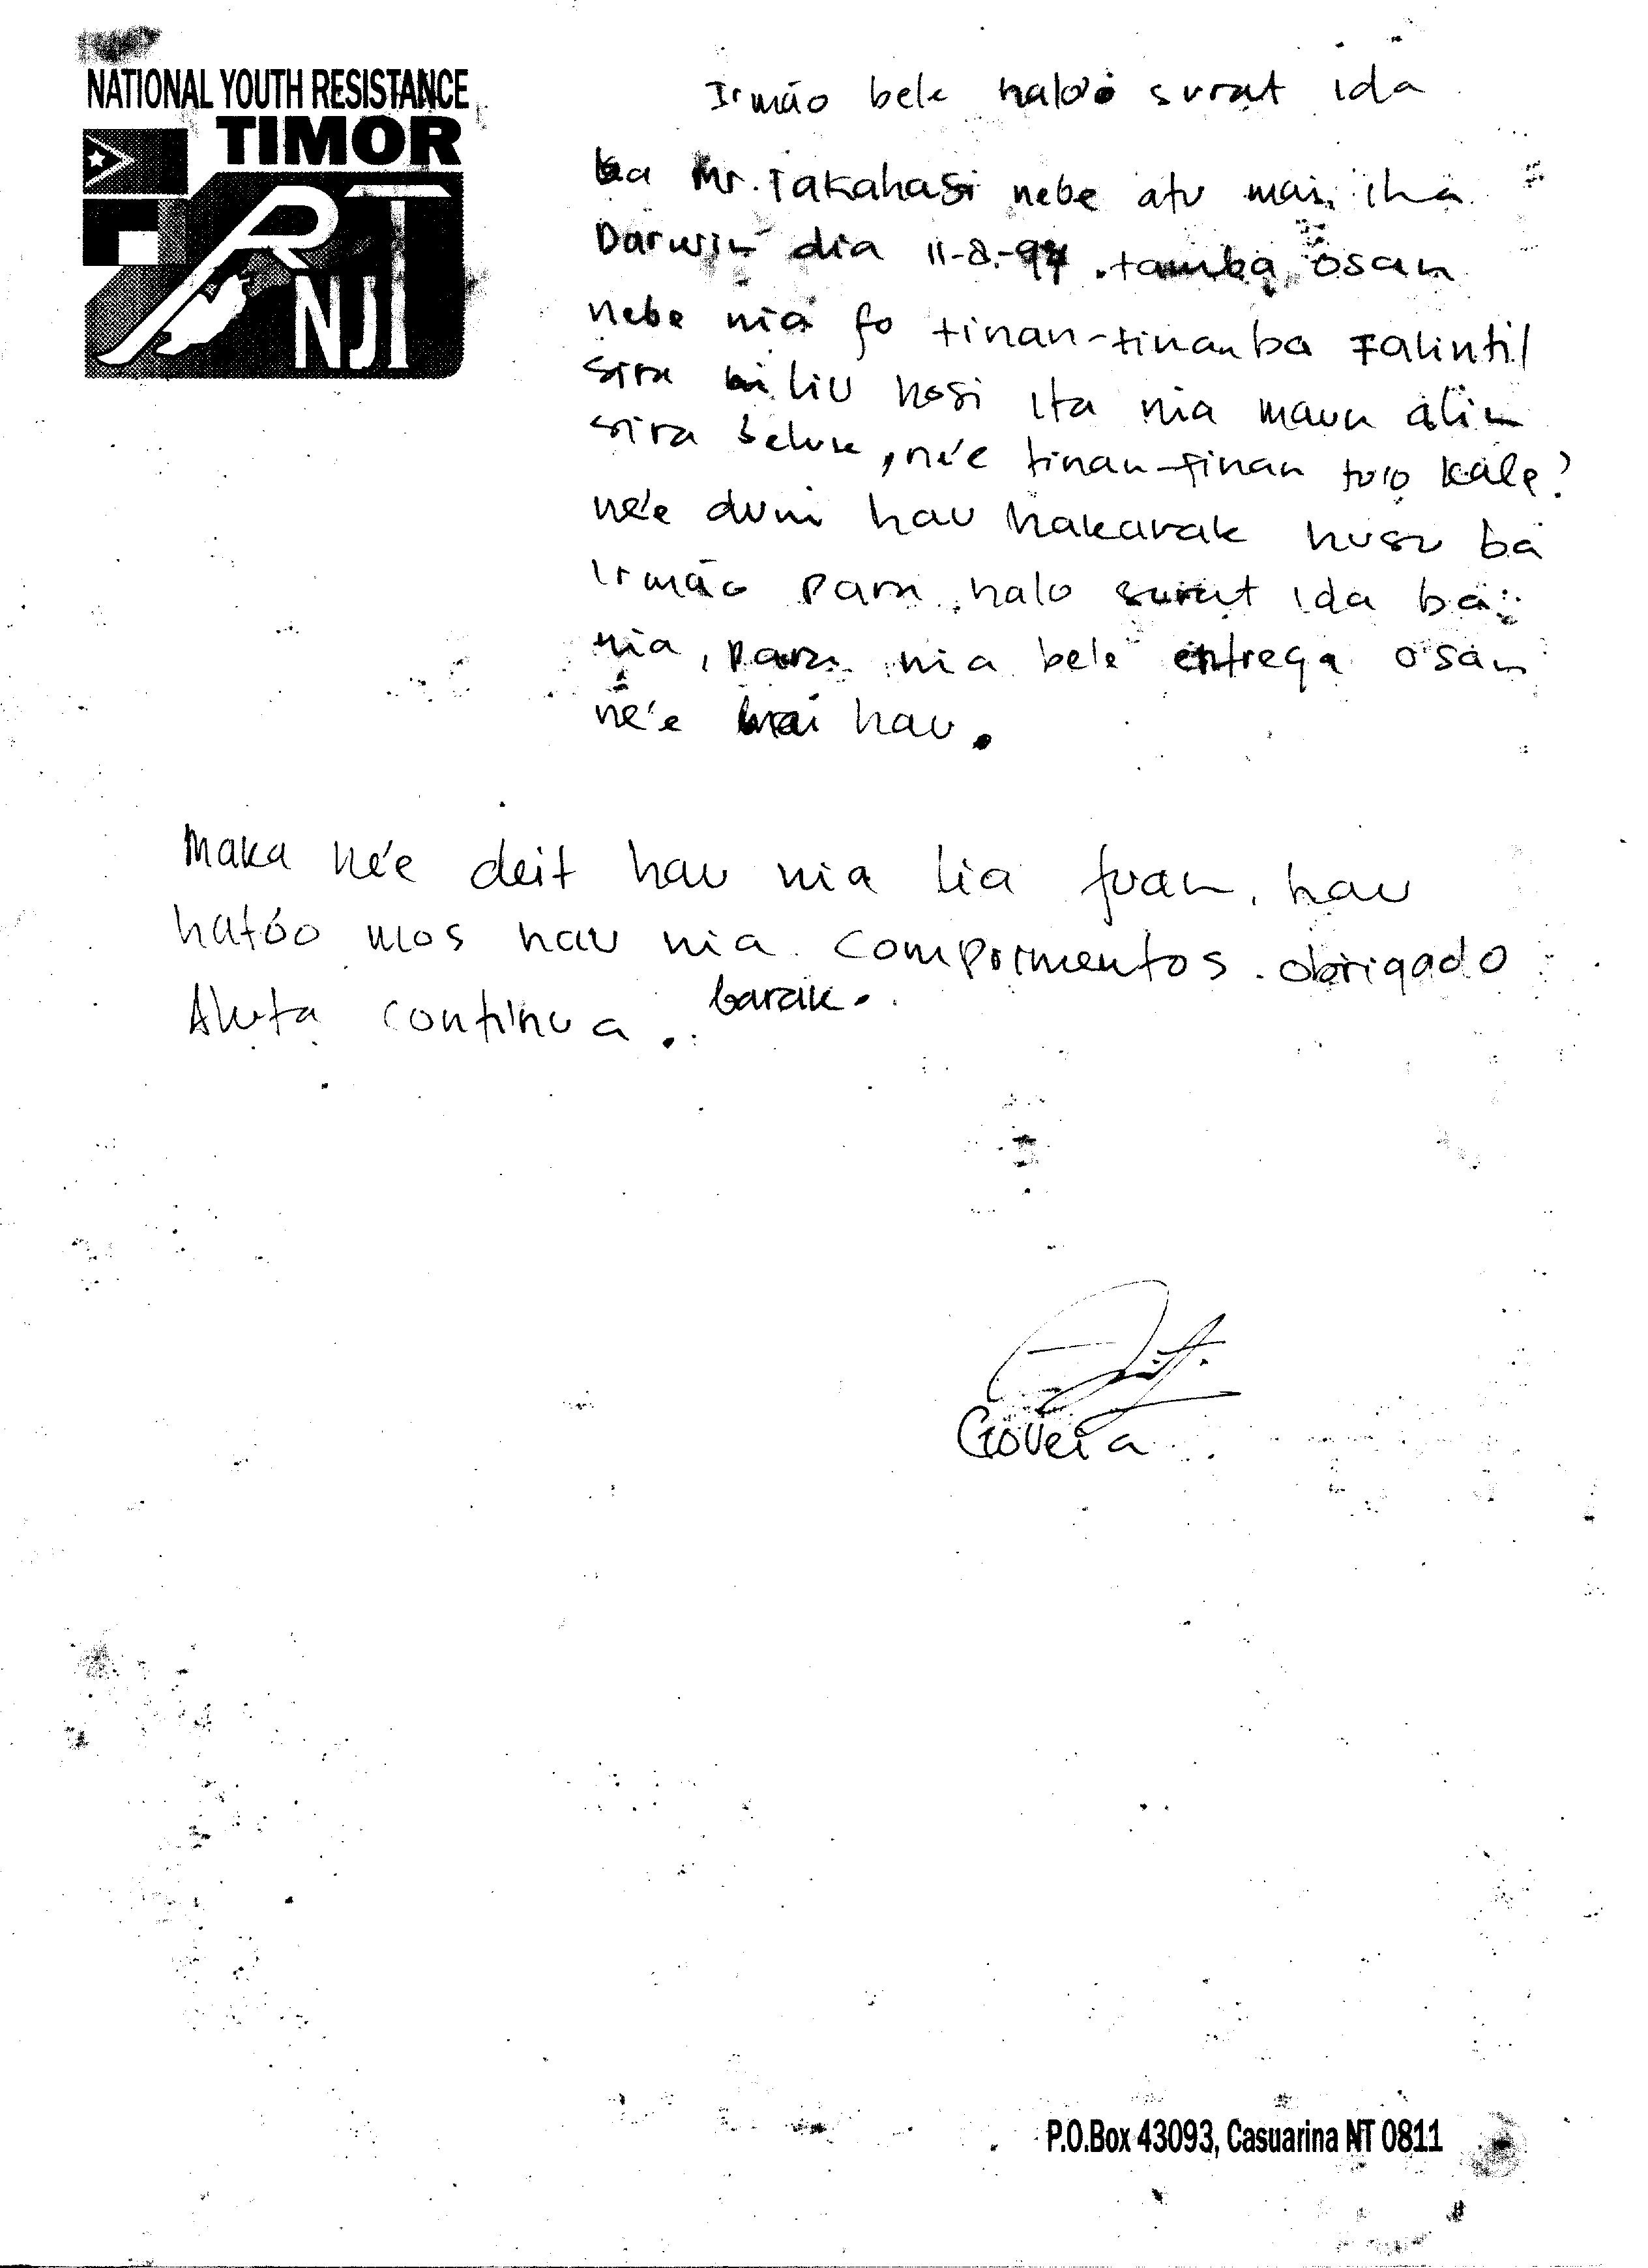 NATIONAL YOUTH RESISTANCE
TIMOR
R T
NJT
Irmão bele haloó surat ida
ba Mr. Takahasi nebe atu mai iha
Darwin dia 11-8-97. tamba osan
nebe nia fo tinan-tinan ba Falintil
sira liu hosi ita nia maun alin
sira seluk, ne'e tinan-tinan to'o kale?
ne'e duni hau hakarak husu ba
Irmão para halo surat ida ba
nia, para nia bele entrega osan
ne'e mai hau.
Maka ne'e deit hau nia lia fuan, hau
hatóo mos hau nia comprimentos. obrigado
barak.
Aluta continua.
Goveia
P.O.Box 43093, Casuarina NT 0811